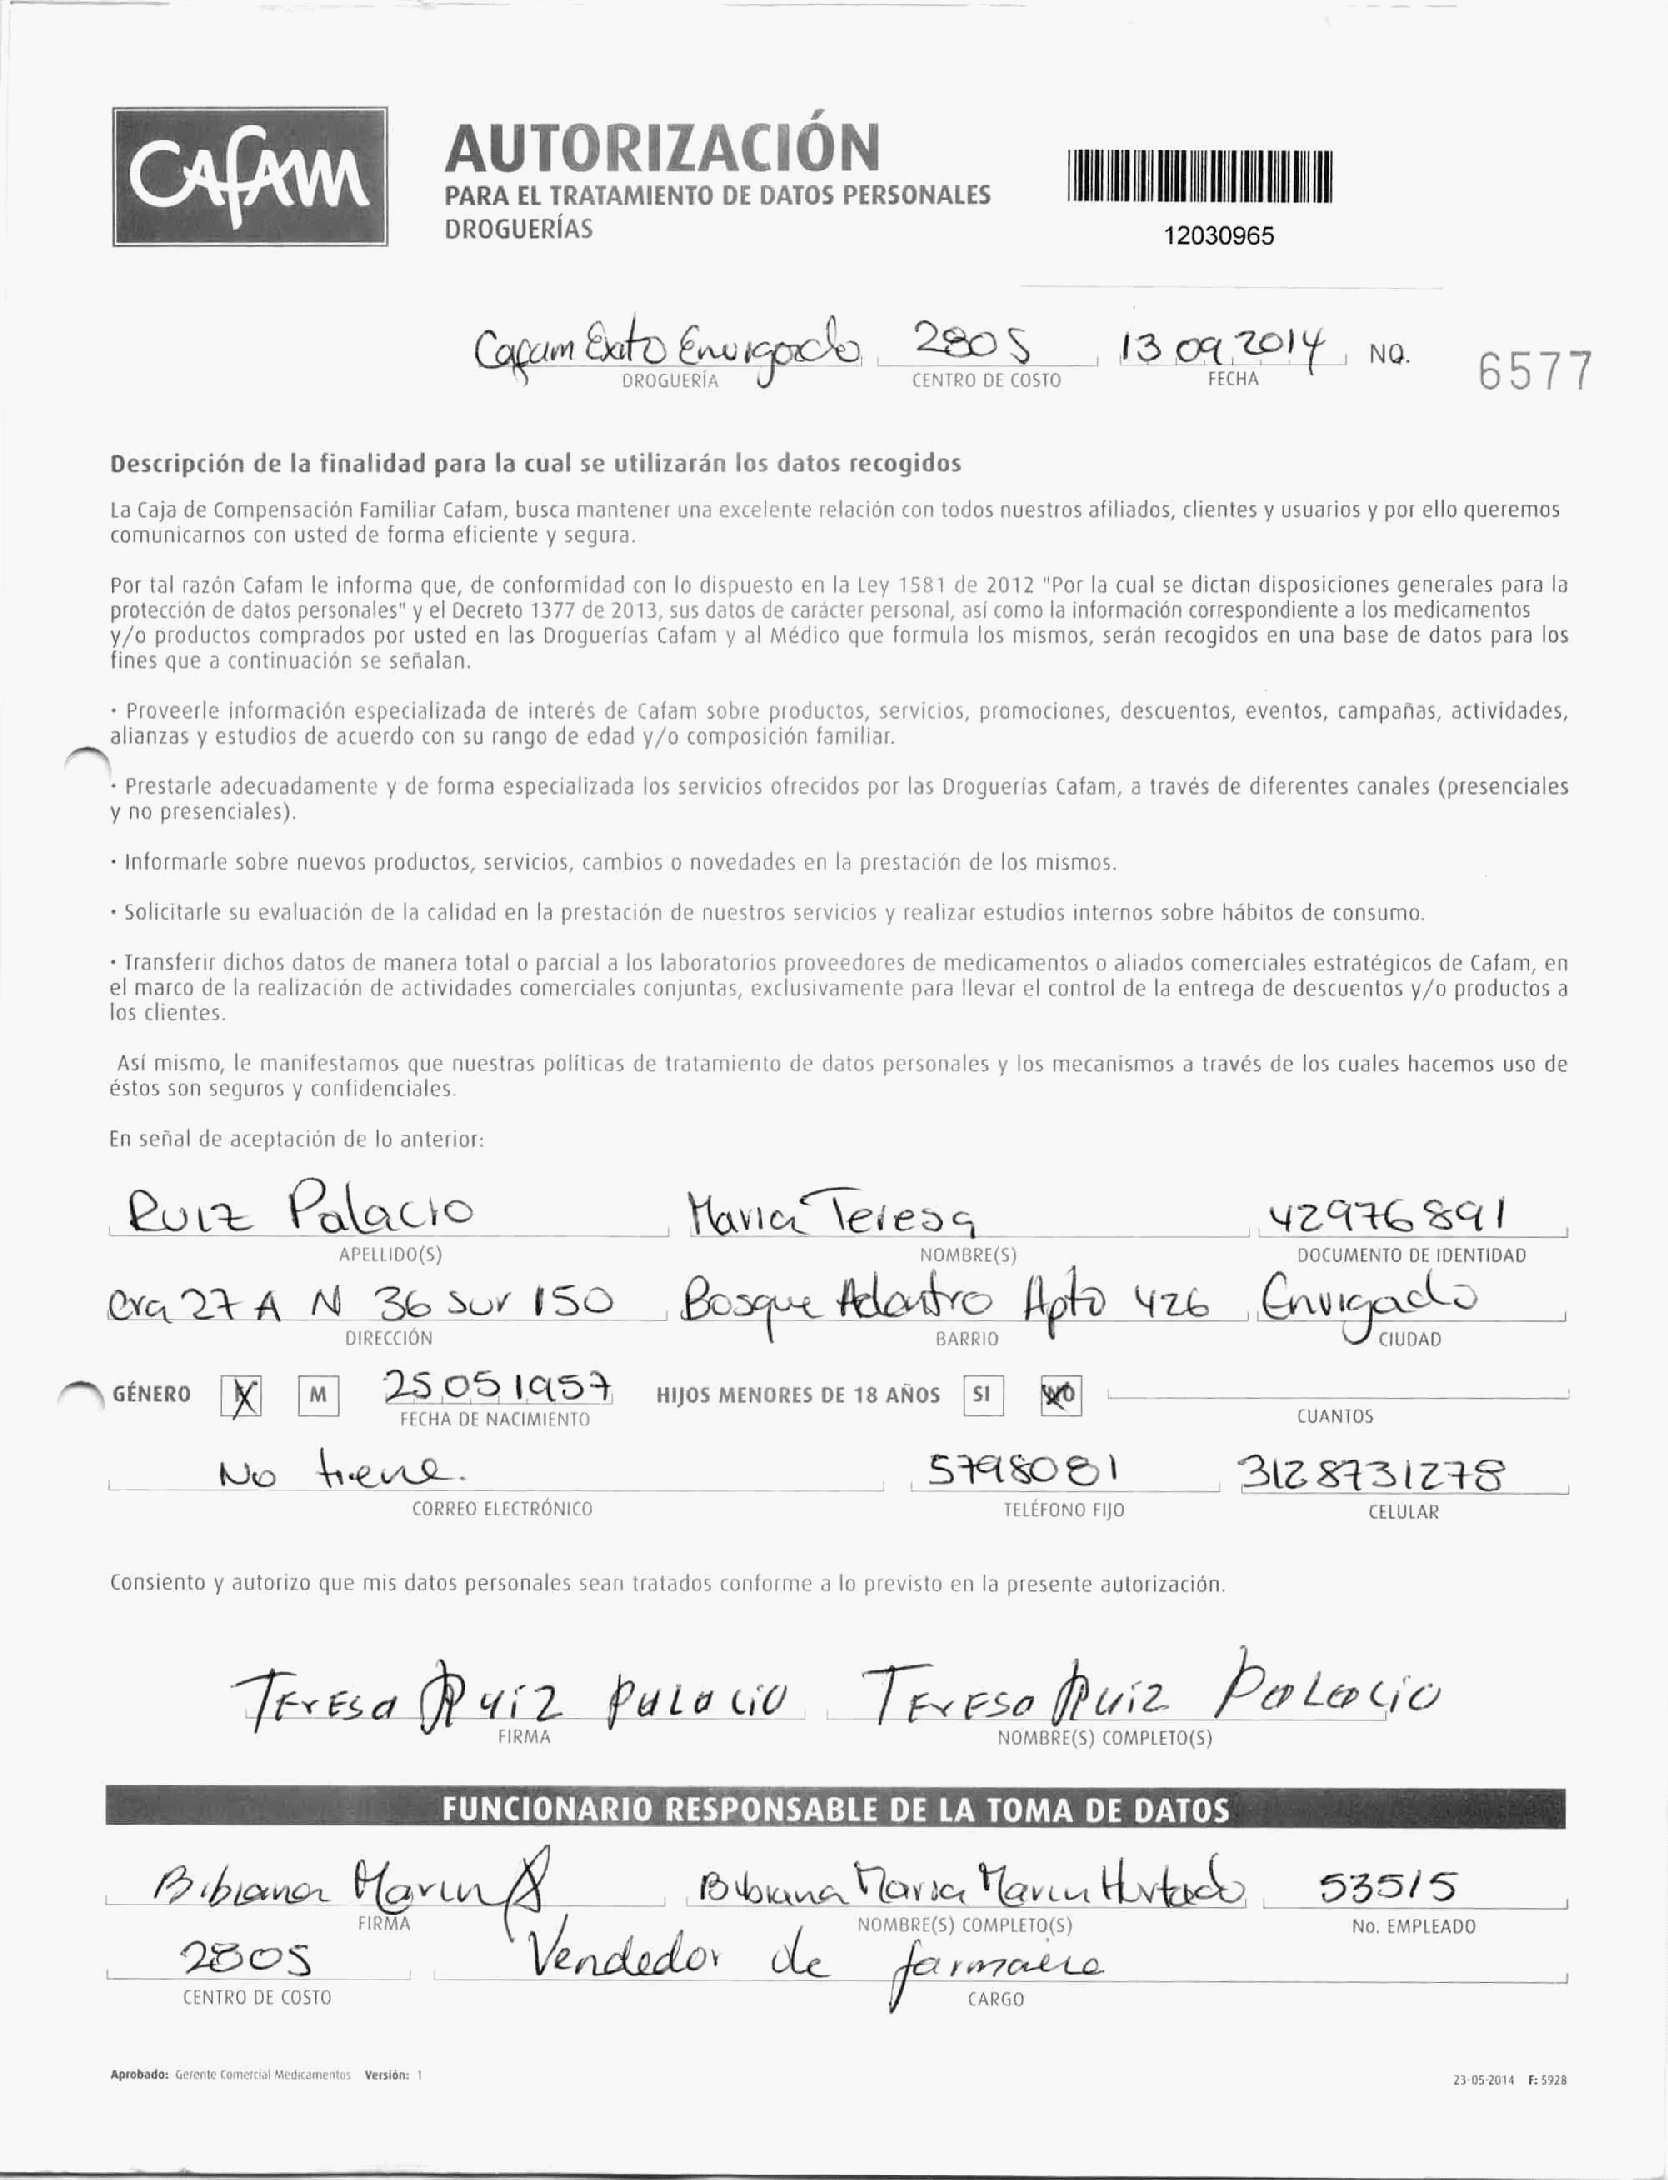 CAFAM
AUTORIZACIÓN
PARA EL TRATAMIENTO DE DATOS PERSONALES
DROGUERÍAS
12030965
Cafam Exito Envigado 2805 13 09 2014 NO. 6577
DROGUERÍA CENTRO DE COSTO FECHA
Descripción de la finalidad para la cual se utilizarán los datos recogidos
La Caja de Compensación Familiar Cafam, busca mantener una excelente relación con todos nuestros afiliados, clientes y usuarios y por ello queremos
comunicarnos con usted de forma eficiente y segura.
Por tal razón Cafam le informa que, de conformidad con lo dispuesto en la Ley 1581 de 2012 "Por la cual se dictan disposiciones generales para la
protección de datos personales" y el Decreto 1377 de 2013, sus datos de carácter personal, así como la información correspondiente a los medicamentos
y/o productos comprados por usted en las Droguerías Cafam y al Médico que formula los mismos, serán recogidos en una base de datos para los
fines que a continuación se señalan.
· Proveerle información especializada de interés de Cafam sobre productos, servicios, promociones, descuentos, eventos, campañas, actividades,
alianzas y estudios de acuerdo con su rango de edad y/o composición familiar.
· Prestarle adecuadamente y de forma especializada los servicios ofrecidos por las Droguerías Cafam, a través de diferentes canales (presenciales
y no presenciales).
· Informarle sobre nuevos productos, servicios, cambios o novedades en la prestación de los mismos.
· Solicitarle su evaluación de la calidad en la prestación de nuestros servicios y realizar estudios internos sobre hábitos de consumo.
· Transferir dichos datos de manera total o parcial a los laboratorios proveedores de medicamentos o aliados comerciales estratégicos de Cafam, en
el marco de la realización de actividades comerciales conjuntas, exclusivamente para llevar el control de la entrega de descuentos y/o productos a
los clientes.
Así mismo, le manifestamos que nuestras políticas de tratamiento de datos personales y los mecanismos a través de los cuales hacemos uso de
éstos son seguros y confidenciales.
En señal de aceptación de lo anterior:
Ruiz Palacio Maria Teresa 42976891
APELLIDO(S) NOMBRE(S) DOCUMENTO DE IDENTIDAD
cra 27 A N 36 sur 150 Bosque Apto 426 Envigado
DIRECCIÓN BARRIO CIUDAD
GÉNERO X M 25 05 1957 HIJOS MENORES DE 18 AÑOS SI NO
FECHA DE NACIMIENTO CUANTOS
No tiene. 5798081 3128731278
CORREO ELECTRÓNICO TELÉFONO FIJO CELULAR
Consiento y autorizo que mis datos personales sean tratados conforme a lo previsto en la presente autorización.
Teresa Ruiz palacio Teresa Ruiz Palacio
FIRMA NOMBRE(S) COMPLETO(S)
FUNCIONARIO RESPONSABLE DE LA TOMA DE DATOS
Bibiana Marin Bibiana Maria Marin Hurtado 53515
FIRMA NOMBRE(S) COMPLETO(S) No. EMPLEADO
2805 Vendedor de
CENTRO DE COSTO CARGO
Aprobado: Gerente Comercial Medicamentos Versión: 1
23-05-2014 F: 5928